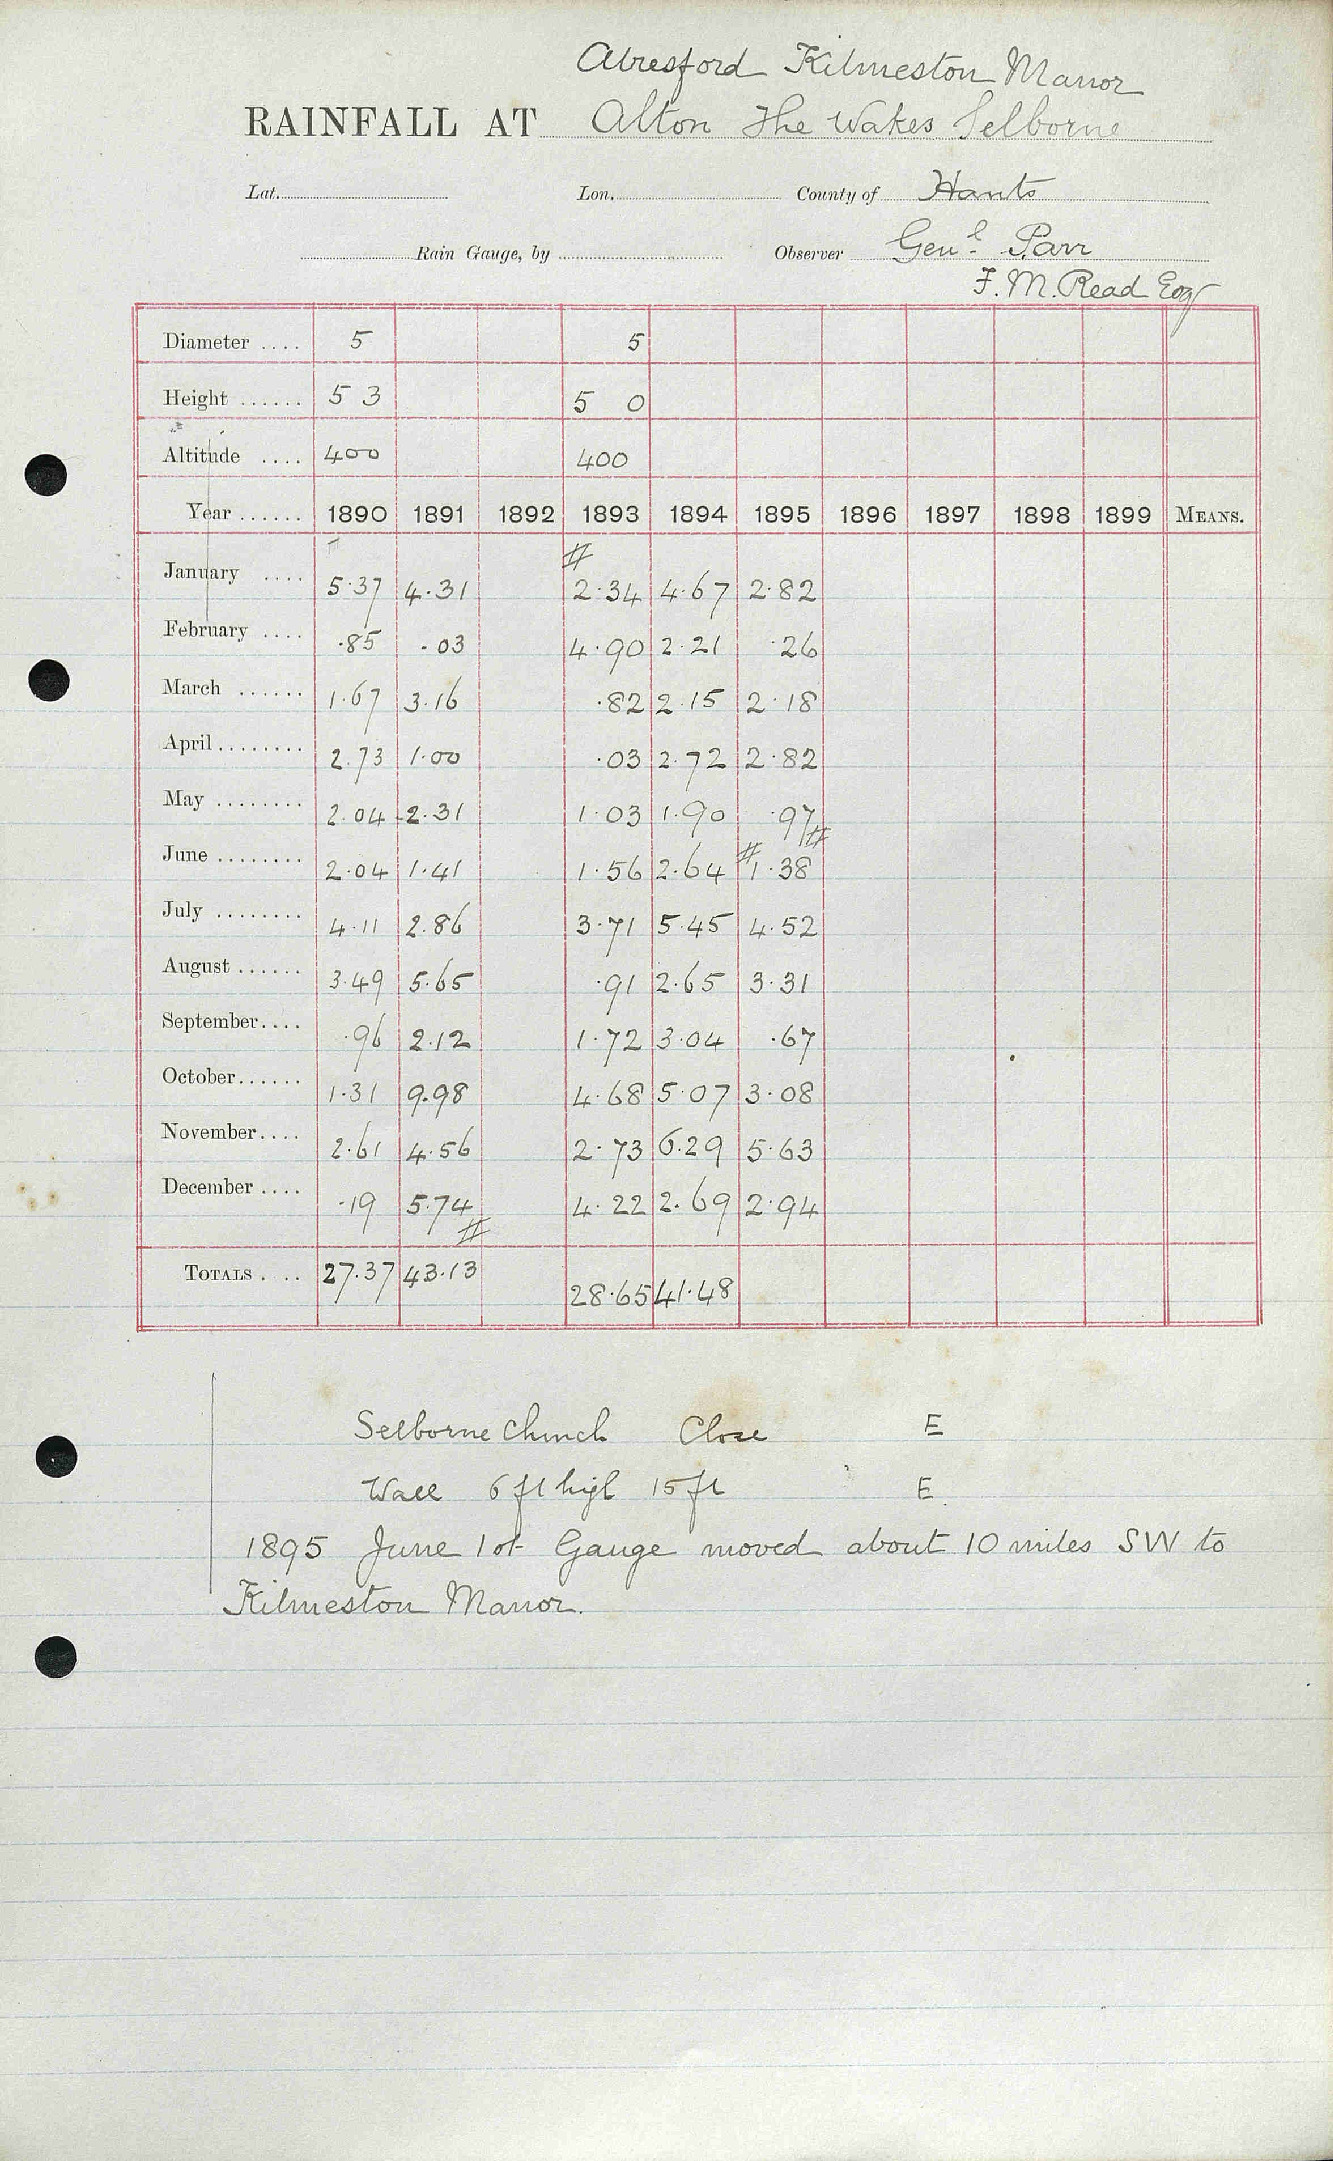 Alresford Kilmeston Manor
RAINFALL AT Alton The Wakes Selborne
Lat. Lon. County of Hants
Rain Gauge, by Observer Genl. Parr
F. M. Read Esq
Diameter .... 5 5
Height ...... 5 3 5 0
Altitude .... 400 400
Year ...... 1890 1891 1892 1893 1894 1895 1896 1897 1898 1899 MEANS.
#
January .... 5.37 4.31 2.34 4.67 2.82
February .... .85 .03 4.90 2.21 .26
March ...... 1.67 3.16 .82 2.15 2.18
April ........ 2.73 1.00 .03 2.72 2.82
May ........ 2.04 2.31 1.03 1.90 .97 #
June ........ 2.04 1.41 1.56 2.64 # 1.38
July ........ 4.11 2.86 3.71 5.45 4.52
August ...... 3.49 5.65 .91 2.65 3.31
September.... .96 2.12 1.72 3.04 .67
October...... 1.31 9.98 4.68 5.07 3.08
November.... 2.61 4.56 2.73 6.29 5.63
December .... .19 5.74 # 4.22 2.69 2.94
TOTALS .... 27.37 43.13 28.65 41.48
Selborne Church Close E
Wall 6 ft high 15 ft E
1895 June 1st Gauge moved about 10 miles SW to
Kilmeston Manor.